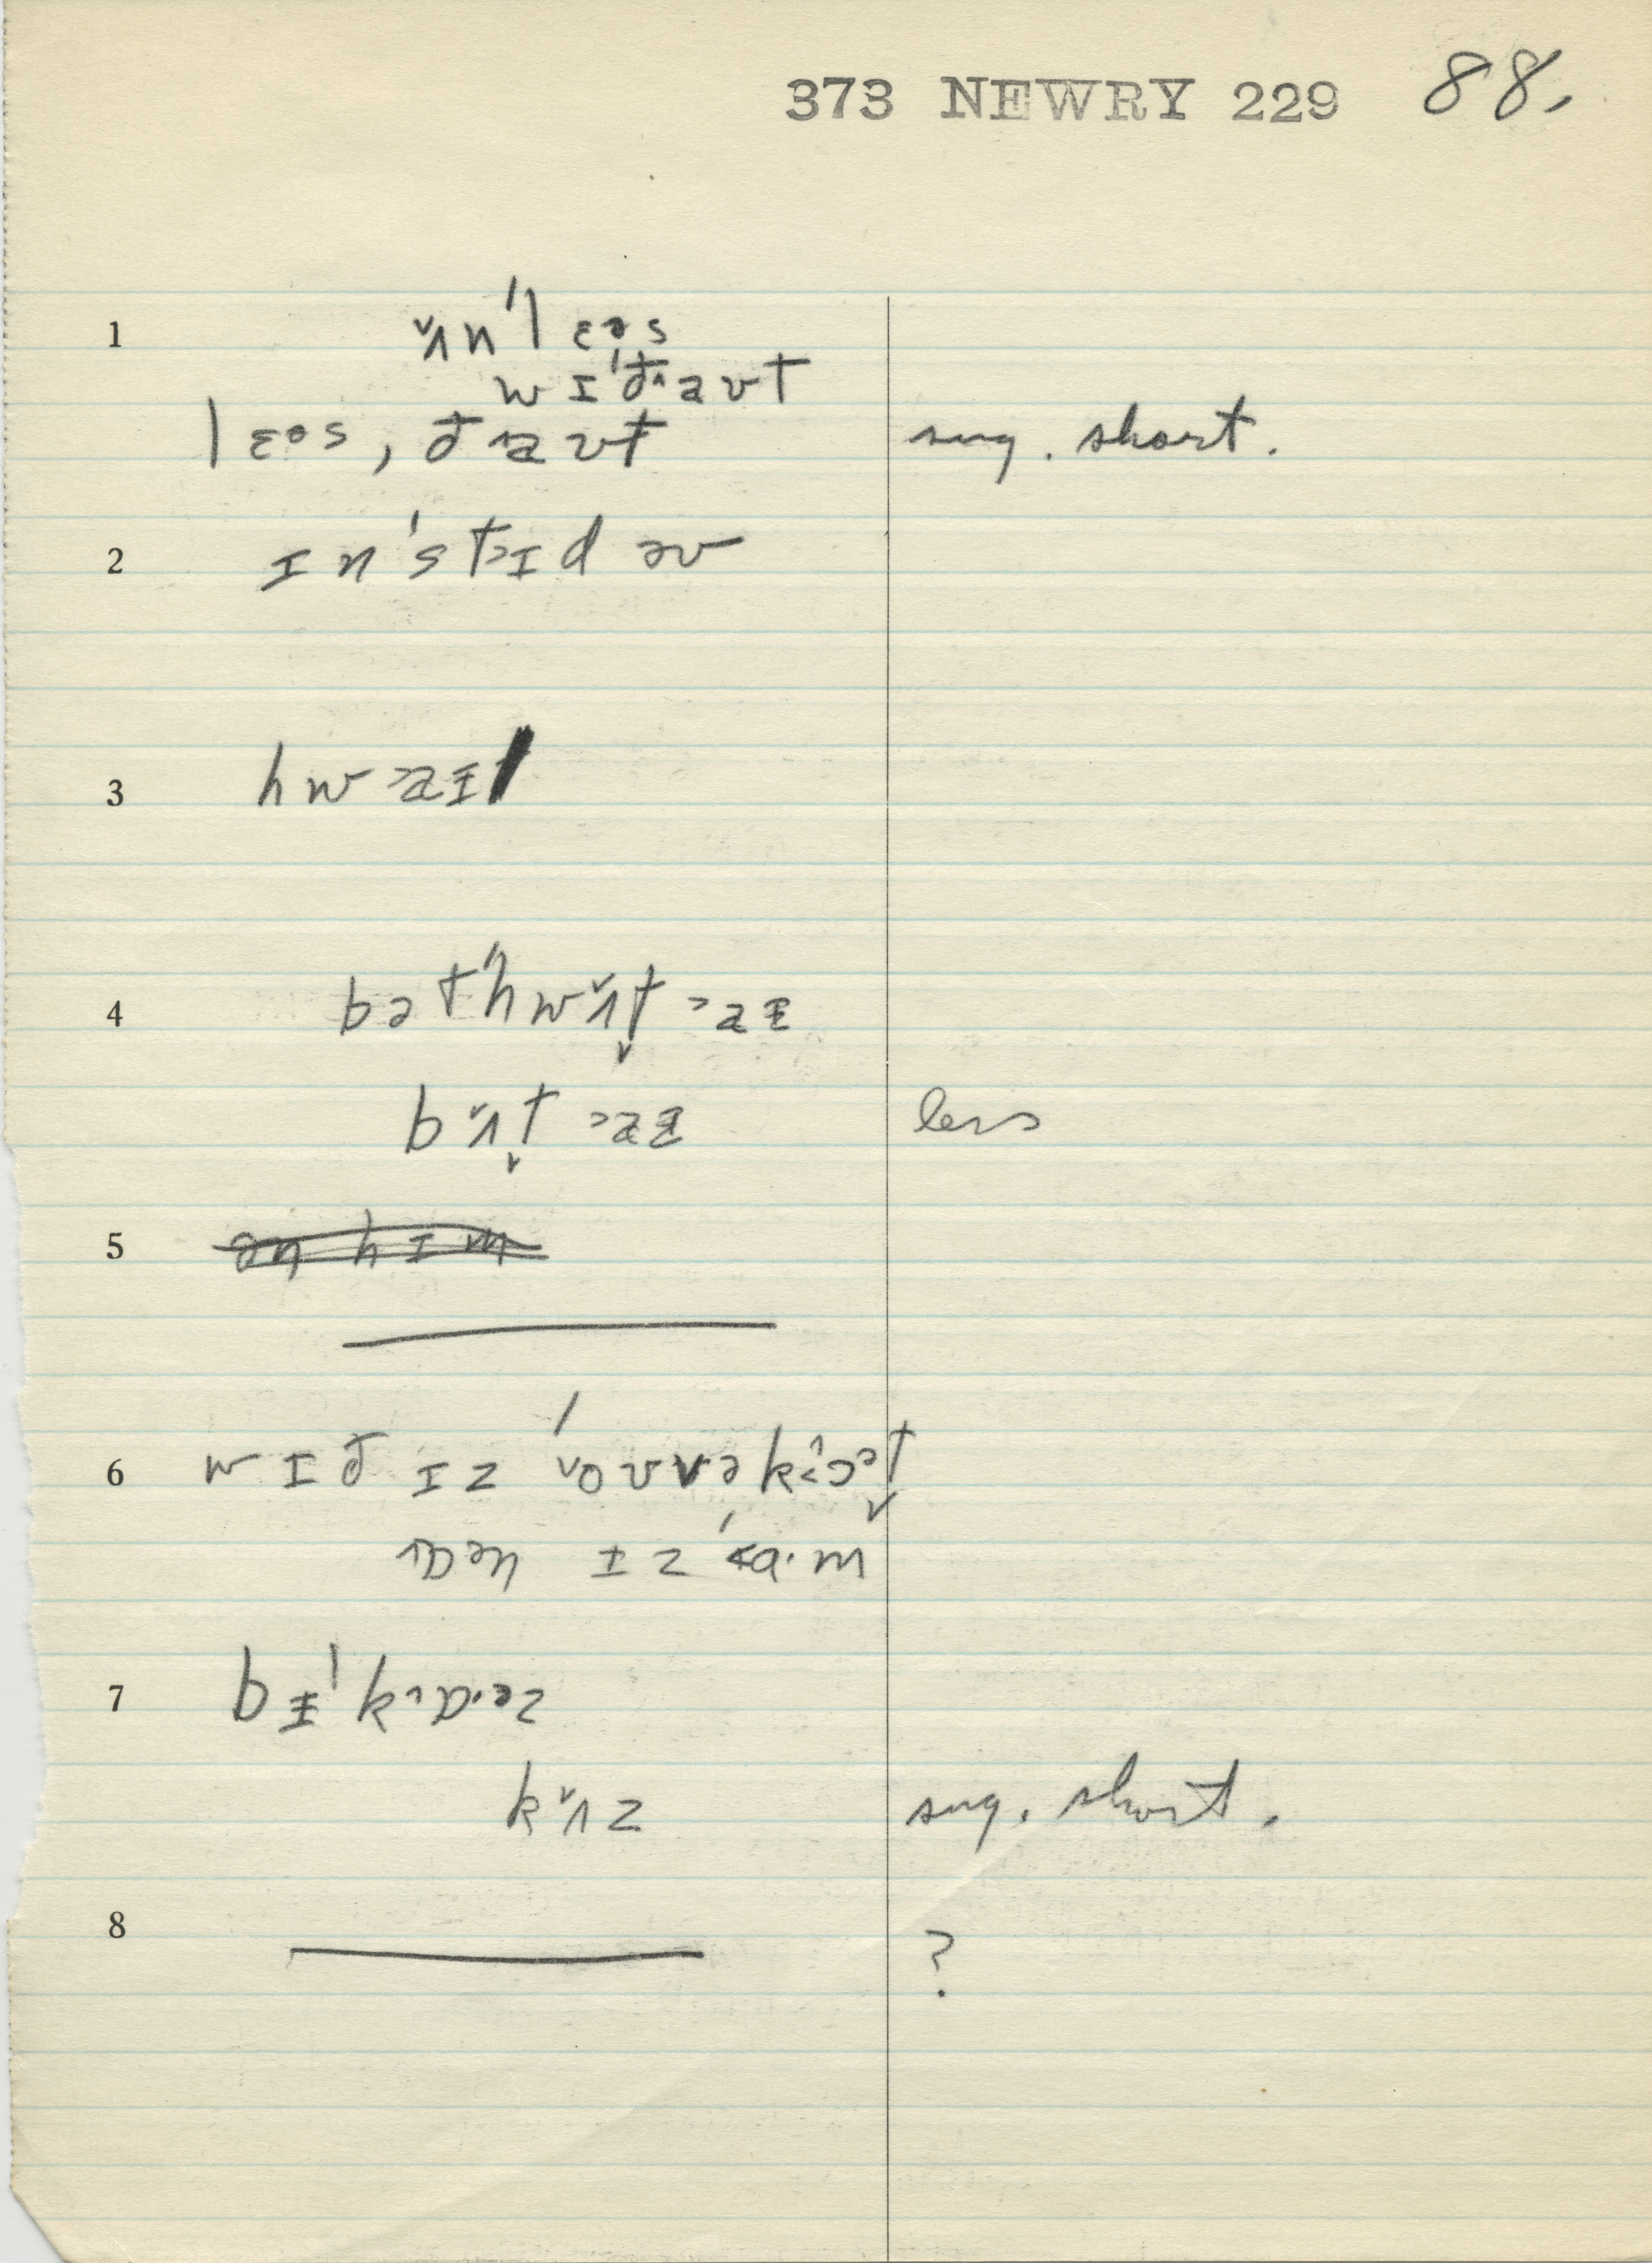 373 NEWRY 229 88.
1 ʌ̌n'lɛəs
wɪ'ðaʊt
lɛəs, ðaʊt sug. short.
2 ɪn'stɪd əv
3 hwaɪ
4 bət'hwʌ̌t aɪ
bʌ̌t aɪ less
5 ən hɪm
6 wɪð ɪz 'oʊvəkɔət
ɒən ɪz 'ɑ·m
7 bɪ'kɒ·əz
kʌ̌z sug. short.
8 ?